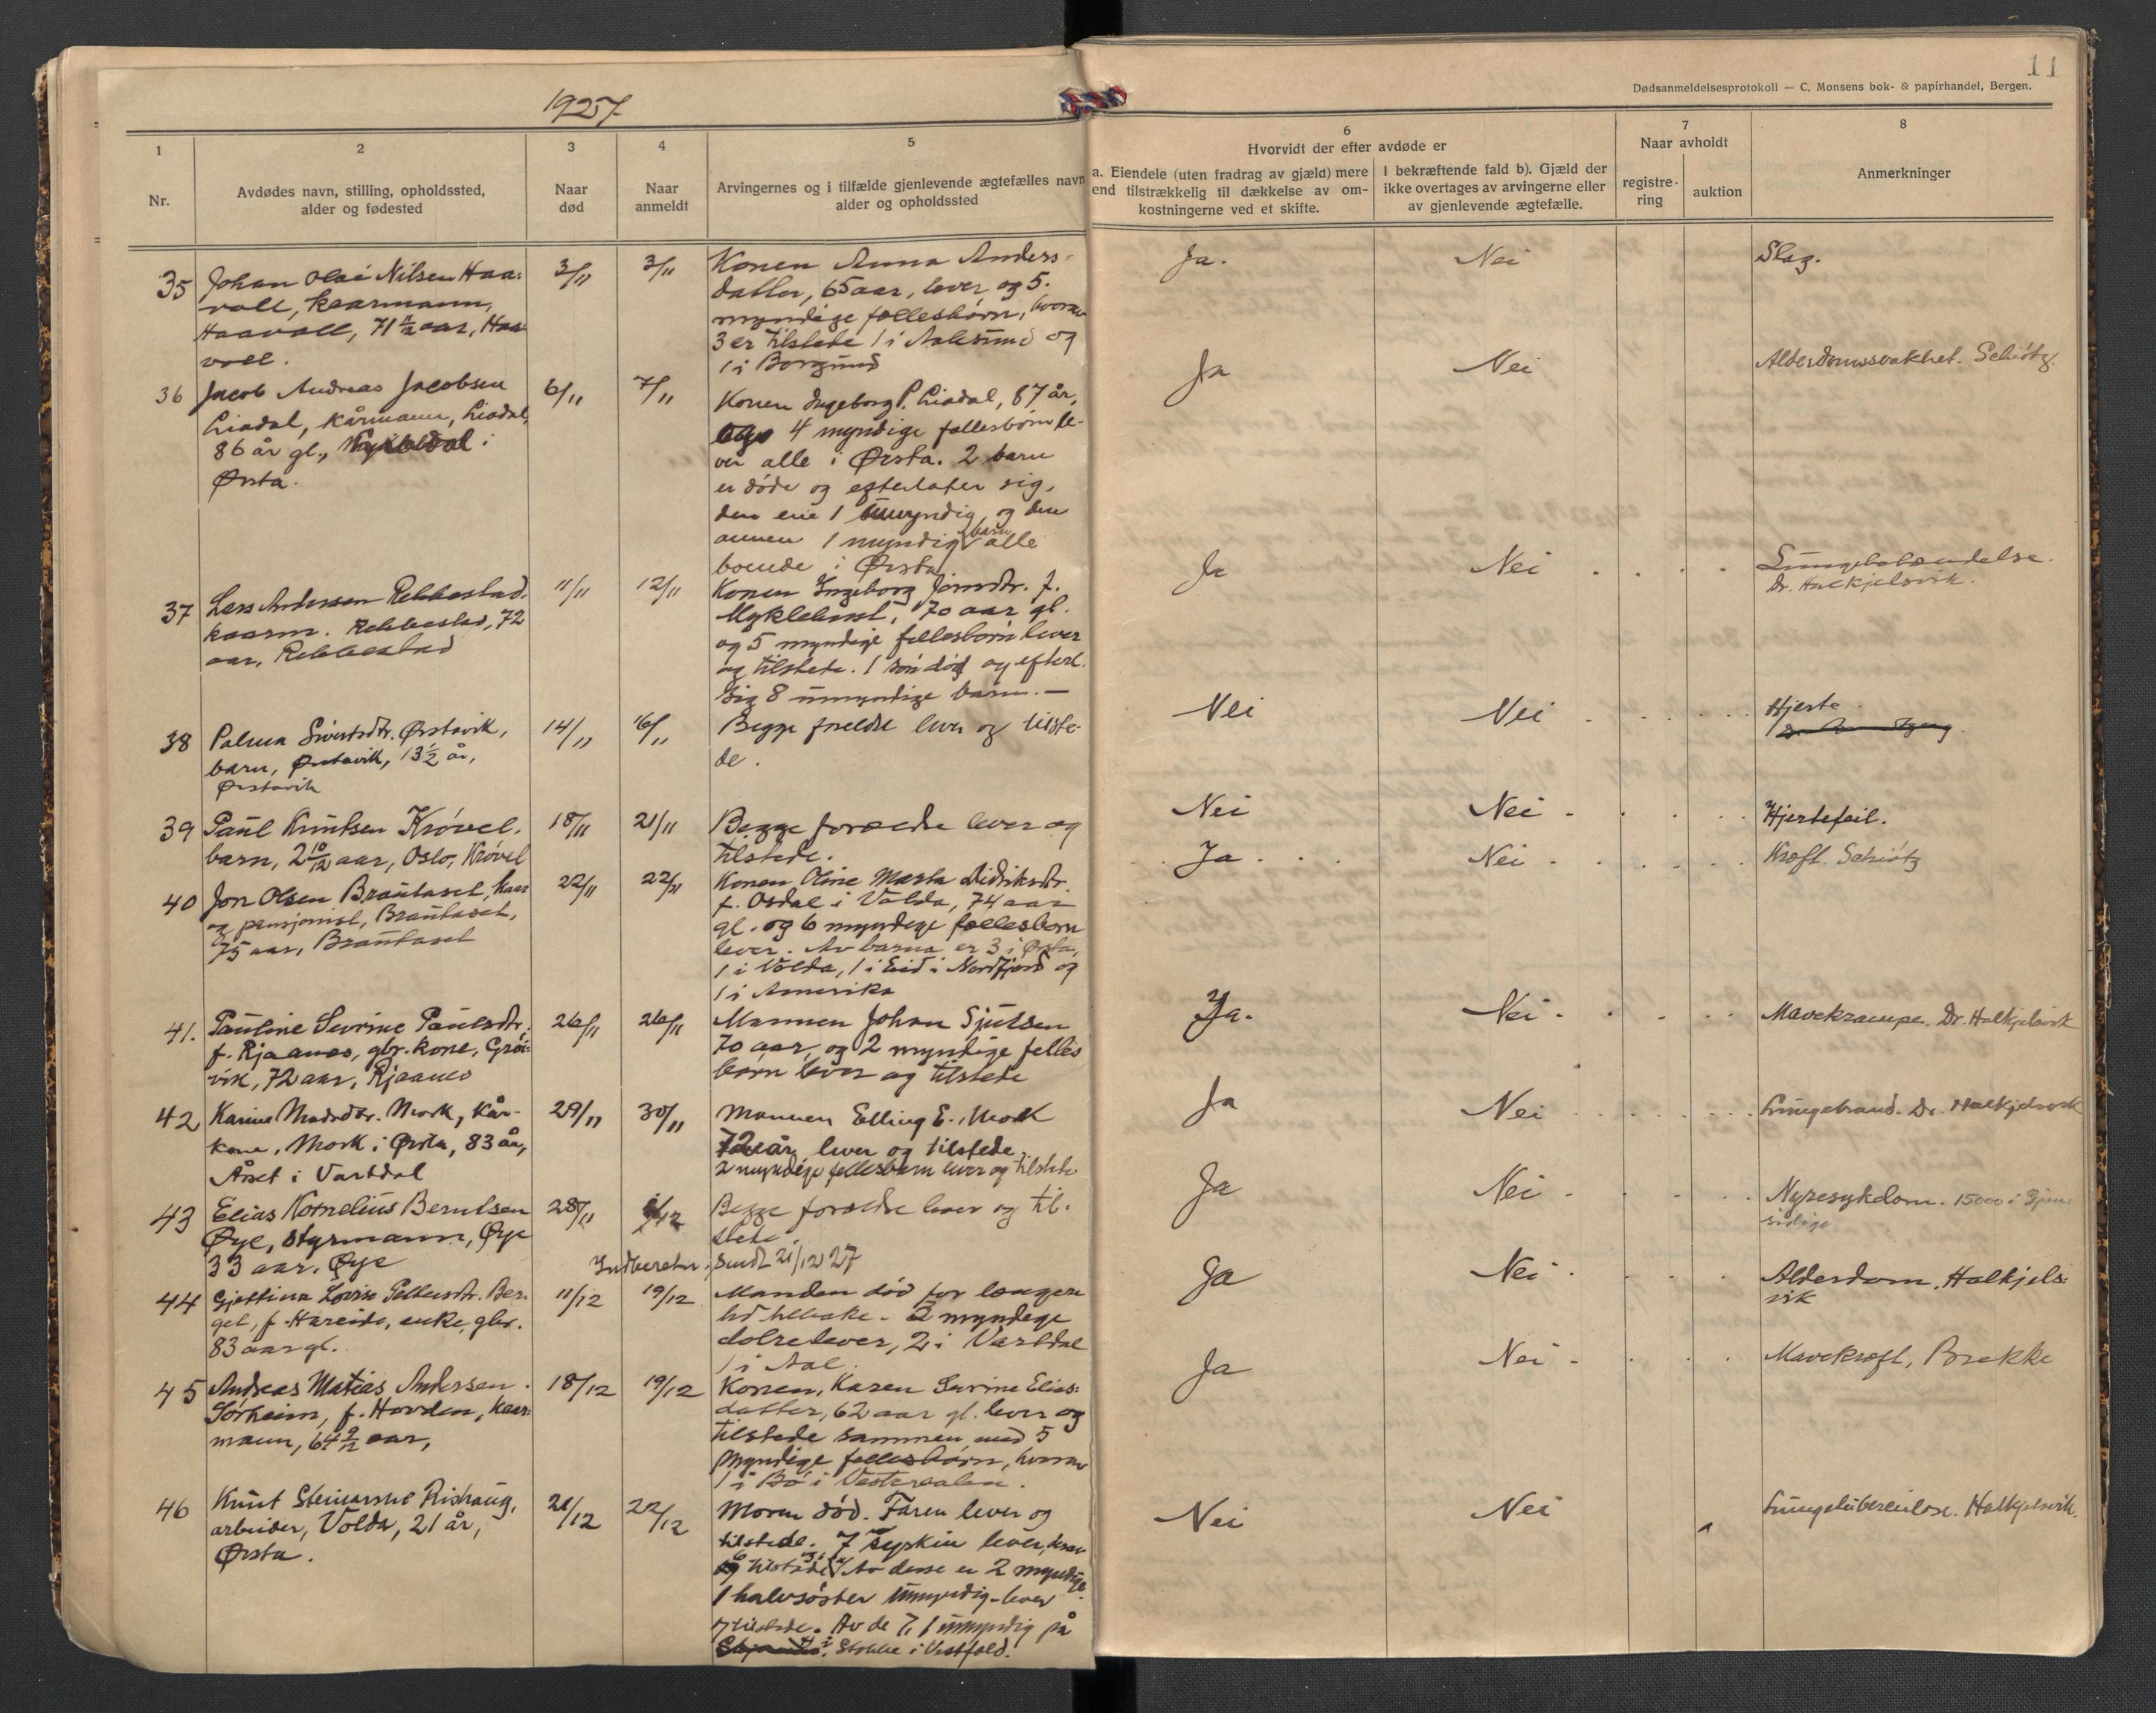 11
Dødsanmeldelsesprotokoll — C. Monsens bok- & papirhandel, Bergen.
1927
1
Nr.
2
Avdødes navn, stilling, opholdssted,
alder og fødested
3
Naar
død
4
Naar
anmeldt
5
Arvingernes og i tilfælde gjenlevende ægtefælles navn
alder og opholdssted
6
Hvorvidt der efter avdøde er
a. Eiendele (uten fradrag av gjæld) mere
end tilstrækkelig til dækkelse av om-
kostningerne ved et skifte.
I bekræftende fald b). Gjæld der
ikke overtages av arvingerne eller
av gjenlevende ægtefælle.
7
Naar avholdt
registre-
ring
auktion
8
Anmerkninger
35
Johan Olai Nilsen Haa-
voll, kaarmann,
Haavoll, 71 11/12 aar, Haa-
voll.
3/11
3/11
Konen Anna Anders-
datter, 65 aar, lever og 5
myndige fællesbørn, hvorav
3 er tilstede 1 i Aalesund og
1 i Borgund
Ja.
Nei
Slag.
36
Jacob Andreas Jacobsen
Liadal, kårmann, Liadal,
86 år gl., i
Ørsta.
6/11
7/11
Konen Ingeborg P. Liadal, 87 år,
4 myndige fællesbørn le-
ver alle i Ørsta. 2 barn
er døde og efterlater sig,
den ene 1 umyndig og den
annen 1 myndig barn alle
boende i Ørsta
Ja
Nei
Alderdomssvakhet. Schiøtz.
37
Lars Andersen Rebbestad,
kaarm. Rebbestad, 72
aar, Rebbestad
11/11
12/11
Konen Ingeborg Jonsdtr. f.
Myklebust, 70 aar gl.
og 5 myndige fellesbørn lever
og tilstede. 1 søn død og efterl.
sig 8 umyndige barn. —
Ja
Nei
Lungebetændelse.
Dr. Halkjelsvik.
38
Palma Sivertsdtr. Ørstavik,
barn, Ørstavik, 13 1/2 år,
Ørstavik
14/11
16/11
Begge foreldre lever og tilste-
de.
Nei
Nei
Hjerte
39
Paul Knutsen Krøvel.
barn, 2 10/12 aar, Oslo, Krøvel
18/11
21/11
Begge forældre lever og
tilstede.
Nei
Nei
Hjertefeil.
40
Jon Olsen Brautaset, kaar
og pensjonist, Brautaset,
75 aar, Brautaset
22/11
22/11
Konen Oline Marta Didriksdtr.
f. Osdal i Volda, 74 aar
gl. og 6 myndige fællesbørn
lever. Av barna er 3 i Ørsta,
1 i Volda, 1 i Eid i Nordfjord og
1 i Amerika
Ja
Nei
Kræft. Schiøtz
41.
Pauline Sevrine Paulsdtr.
f. Rjaanes, gbr. kone, Grøt-
vik, 72 aar, Rjaanes
26/11
26/11
Mannen Johan Sjulsen
70 aar, og 2 myndige felles
børn lever og tilstede
Ja.
Nei
Mavekrampe. Dr. Halkjelsvik
42
Karine Madsdtr. Mork, kår-
kone, Mork i Ørsta, 83 år,
Åset i Vartdal
29/11
30/11
Mannen Elling E. Mork
72 år lever og tilstede.
2 myndige fellesbarn lever og tilstede
Ja
Nei
Lungebrand. Dr. Halkjelsvik
43
Elias Kornelius Berntsen
Øye, styrmann, Øye
33 aar. Øye
28/11
1/12
Begge forældre lever og til-
stede.
Indberetn. sendt 21/12 27
Ja
Nei
Nyresykdom. 15000 i Gjen-
sidige
44
Gjertina Lovise Pettersdtr. Ber-
get, f. Hareide, enke, gbr.
83 aar gl.
11/12
19/12
Manden død for længere
tid tilbake. 2 myndige
døtre lever, 2 i Vartdal
1 i Aal.
Ja
Nei
Alderdom. Halkjels-
vik
45
Andreas Matias Andersen
Sørheim, f. Hovden, kaar-
mann, 64 9/12 aar,
18/12
19/12
Konen, Karen Sevrine Elias-
datter, 62 aar gl. lever og
tilstede sammen med 5
myndige fellesbørn, hvorav
1 i Bø i Vesteraalen.
Ja
Nei
Mavekræft, Brekke
46
Knut Steinarsne Rishaug,
arbeider, Volda, 21 år,
Ørsta.
21/12
22/12
Moren død. Faren lever og
tilstede. 7 syskin lever, herav
6 tilstede. Av desse er 2 myndige
1 halvsøster umyndig lever
tilstede. Av de 7, 1 umyndig på
Stokke i Vestfold.
Nei
Nei
Lungetuberculose. Halkjelsvik.